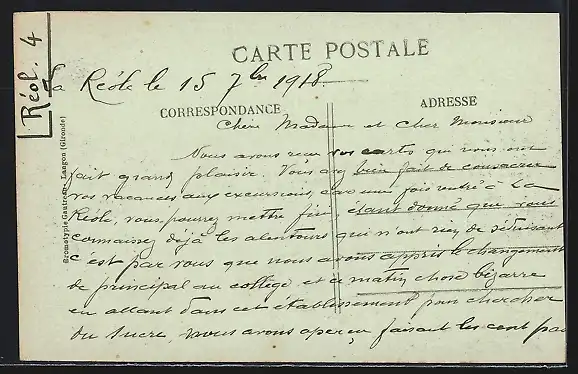 CARTE POSTALE
Réol. 4
La Réole le 15 7bre 1918
CORRESPONDANCE
ADRESSE
Chère Madame et Cher Monsieur
Nous avons reçu vos cartes qui nous ont
fait grand plaisir. Vous avez bien fait de consacrer
vos vacances aux excursions, car une fois rentré à La
Réole, vous pourrez mettre fin, étant donné que vous
connaissez déjà les alentours qui n'ont rien de séduisant
c'est par vous que nous avons appris le changement
de principal au collège et ce matin chose bizarre
en allant dans cet établissement pour chercher
du sucre, nous avons aperçu faisant les cent pas
Bromotypie Gautreau, Langon (Gironde)